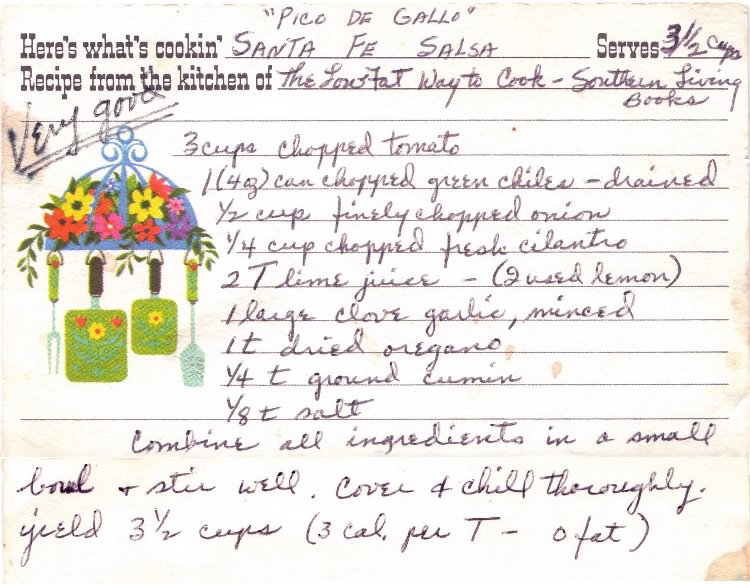 "PICO DE GALLO"
Here's what's cookin' SANTA FE SALSA Serves 3 1/2 cups
Recipe from the kitchen of The Low Fat Way to Cook - Southern Living
Books
Very good
3 cups chopped tomato
1 (4 oz) can chopped green chiles - drained
1/2 cup finely chopped onion
1/4 cup chopped fresh cilantro
2 T lime juice - (I used lemon)
1 large clove garlic, minced
1 t dried oregano
1/4 t ground cumin
1/8 t salt
Combine all ingredients in a small
bowl + stir well. Cover & chill thoroughly.
yield 3 1/2 cups (3 cal. per T - 0 fat)